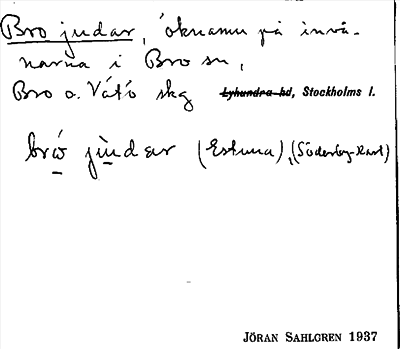 Bro judar, öknamn på invå-
narna i Bro sn,
Bro o. Vätö skg Lyhundra hd, Stockholms l.
brò jùdar (Estuna), (Söderby-Karl)
JÖRAN SAHLGREN 1937